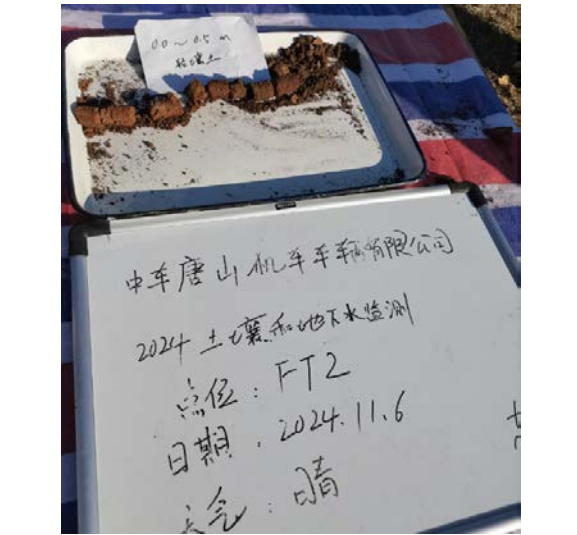 0.0~0.5m
粘壤土
中车唐山机车车辆有限公司
2024土壤和地下水监测
点位：FT2
日期：2024.11.6
天气：晴